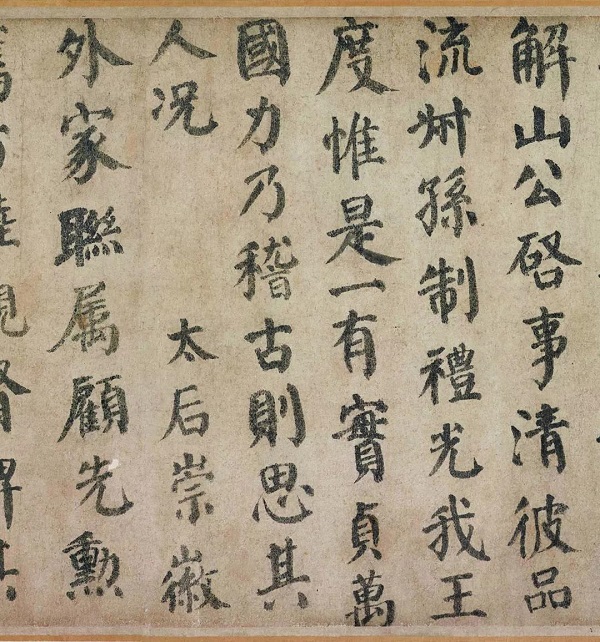 解山公啓事清彼品
流叔孫制禮光我王
度惟是一有實貞萬
國力乃稽古則思其
人况 太后崇徽
外家聯属顧先勳